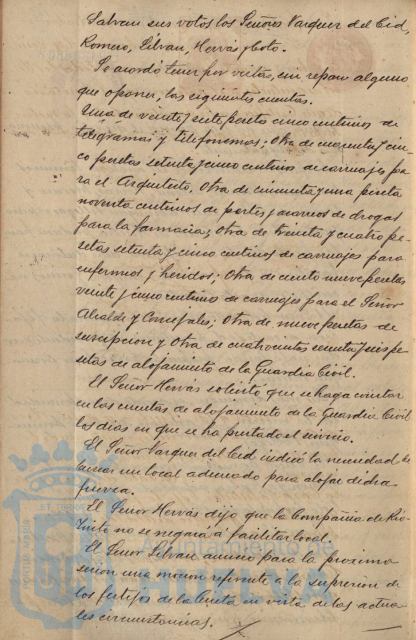 Salvan sus votos los Señores Vazquez del Cid,
Romero, Silvan, Hervás y Soto.
Se acordó tener por vistas, sin reparo alguno
que oponer, las siguientes cuentas.
Una de veinte y siete pesetas cinco centimos de
telegramas y telefonemas; Otra de cuarenta y cin-
co pesetas setenta y cinco centimos de carruajes pa-
ra el Arquitecto. Otra de cincuenta y una peseta
noventa centimos de portes y acarreos de drogas
para la farmacia; Otra de treinta y cuatro pe-
setas setenta y cinco centimos de carruajes para
enfermos y heridos; Otra de ciento nueve pesetas
veinte y cinco centimos de carruajes para el Señor
Alcalde y Concejales; Otra de nueve pesetas de
suscripcion y Otra de cuatrocientas sesenta y seis pe-
setas de alojamiento de la Guardia Civil.
El Señor Hervás solicitó que se haga constar
en las cuentas de alojamiento de la Guardia Civil
los dias en que se ha prestado el servicio.
El Señor Vazquez del Cid indicó la necesidad de
buscar un local adecuado para alojar dicha
fuerza.
El Señor Hervás dijo que la Compañia de Rio-
Tinto no se negará a facilitar local.
El Señor Silvan anuncio para la proxima
sesion una mocion referente a la supresion de
los festejos de la Cinta en vista de las actua-
les circunstancias.